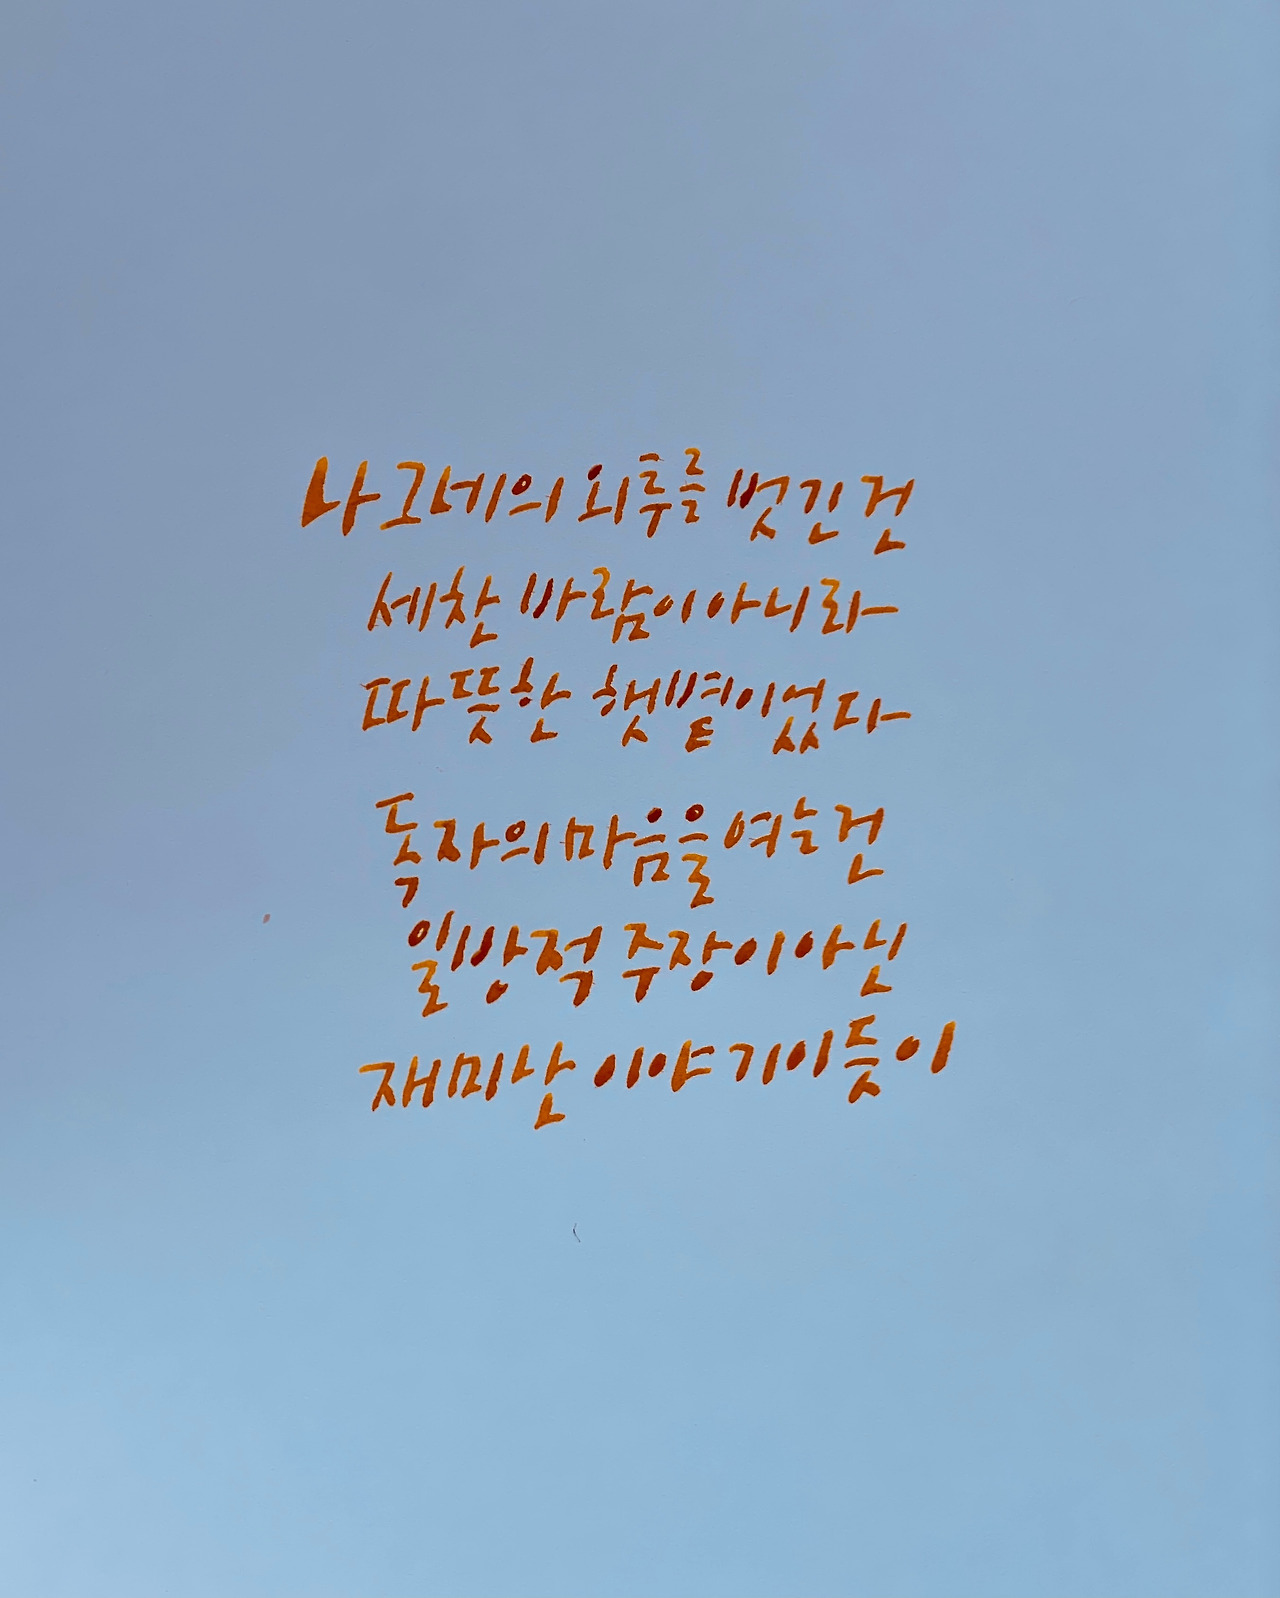 나그네의 외투를 벗긴 건
세찬 바람이 아니라
따뜻한 햇볕이었다
독자의 마음을 여는 건
일방적 주장이 아닌
재미난 이야기이듯이